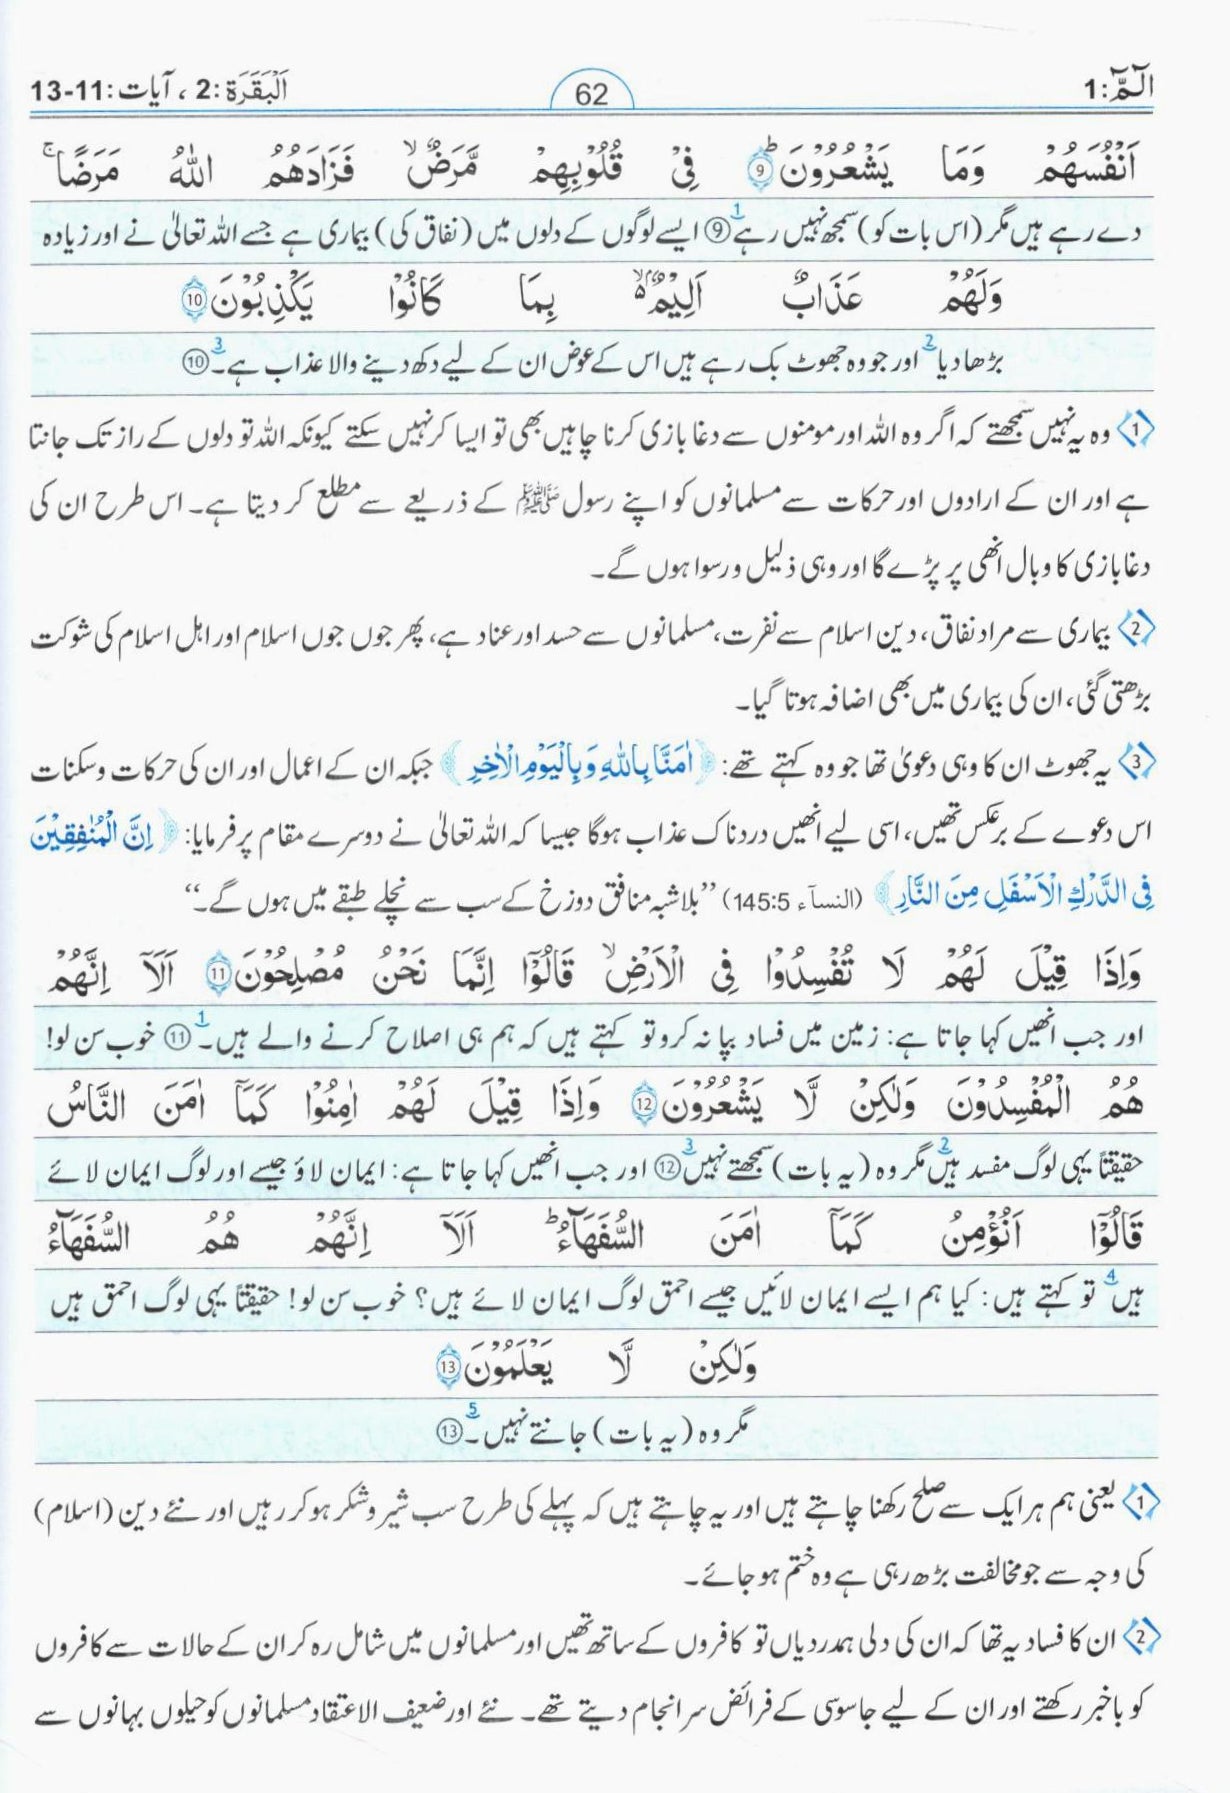 الٓمّٓ:1 62 اَلْبَقَرَة:2 ، آیات:11-13
اَنْفُسَهُمْ وَمَا يَشْعُرُوْنَ ؕ ⑨ فِیْ قُلُوْبِهِمْ مَّرَضٌ ۙ فَزَادَهُمُ اللّٰهُ مَرَضًا ۚ
دے رہے ہیں مگر (اس بات کو) سمجھ نہیں رہے1 ⑨ ایسے لوگوں کے دلوں میں (نفاق کی) بیماری ہے جسے اللہ تعالیٰ نے اور زیادہ
وَلَهُمْ عَذَابٌ اَلِيْمٌۢ ۙ۬ بِمَا كَانُوْا يَكْذِبُوْنَ ⑩
بڑھا دیا2 اور جو وہ جھوٹ بک رہے ہیں اس کے عوض ان کے لیے دکھ دینے والا عذاب ہے۔3 ⑩
1 وہ یہ نہیں سمجھتے کہ اگر وہ اللہ اور مومنوں سے دغا بازی کرنا چاہیں بھی تو ایسا کر نہیں سکتے کیونکہ اللہ تو دلوں کے راز تک جانتا
ہے اور ان کے ارادوں اور حرکات سے مسلمانوں کو اپنے رسول ﷺ کے ذریعے سے مطلع کر دیتا ہے۔ اس طرح ان کی
دغا بازی کا وبال انھی پر پڑے گا اور وہی ذلیل و رسوا ہوں گے۔
2 بیماری سے مراد نفاق، دین اسلام سے نفرت، مسلمانوں سے حسد اور عناد ہے، پھر جوں جوں اسلام اور اہل اسلام کی شوکت
بڑھتی گئی، ان کی بیماری میں بھی اضافہ ہوتا گیا۔
3 یہ جھوٹ ان کا وہی دعویٰ تھا جو وہ کہتے تھے: ﴿اٰمَنَّا بِاللّٰهِ وَبِالْيَوْمِ الْاٰخِرِ﴾ جبکہ ان کے اعمال اور ان کی حرکات و سکنات
اس دعوے کے برعکس تھیں، اسی لیے انھیں دردناک عذاب ہوگا جیسا کہ اللہ تعالیٰ نے دوسرے مقام پر فرمایا: ﴿اِنَّ الْمُنٰفِقِيْنَ
فِی الدَّرْكِ الْاَسْفَلِ مِنَ النَّارِ﴾ (النسآء 145:5) ”بلاشبہ منافق دوزخ کے سب سے نچلے طبقے میں ہوں گے۔“
وَاِذَا قِيْلَ لَهُمْ لَا تُفْسِدُوْا فِی الْاَرْضِ ۙ قَالُوْۤا اِنَّمَا نَحْنُ مُصْلِحُوْنَ ⑪ اَلَاۤ اِنَّهُمْ
اور جب انھیں کہا جاتا ہے: زمین میں فساد بپا نہ کرو تو کہتے ہیں کہ ہم ہی اصلاح کرنے والے ہیں۔1 ⑪ خوب سن لو!
هُمُ الْمُفْسِدُوْنَ وَلٰكِنْ لَّا يَشْعُرُوْنَ ⑫ وَاِذَا قِيْلَ لَهُمْ اٰمِنُوْا كَمَاۤ اٰمَنَ النَّاسُ
حقیقتاً یہی لوگ مفسد ہیں2 مگر وہ (یہ بات) سمجھتے نہیں3 ⑫ اور جب انھیں کہا جاتا ہے: ایمان لاؤ جیسے اور لوگ ایمان لائے
قَالُوْۤا اَنُؤْمِنُ كَمَاۤ اٰمَنَ السُّفَهَآءُ ؕ اَلَاۤ اِنَّهُمْ هُمُ السُّفَهَآءُ
ہیں4 تو کہتے ہیں: کیا ہم ایسے ایمان لائیں جیسے احمق لوگ ایمان لائے ہیں؟ خوب سن لو! حقیقتاً یہی لوگ احمق ہیں
وَلٰكِنْ لَّا يَعْلَمُوْنَ ⑬
مگر وہ (یہ بات) جانتے نہیں۔5 ⑬
1 یعنی ہم ہر ایک سے صلح رکھنا چاہتے ہیں اور یہ چاہتے ہیں کہ پہلے کی طرح سب شیر و شکر ہو کر رہیں اور نئے دین (اسلام)
کی وجہ سے جو مخالفت بڑھ رہی ہے وہ ختم ہو جائے۔
2 ان کا فساد یہ تھا کہ ان کی دلی ہمدردیاں تو کافروں کے ساتھ تھیں اور مسلمانوں میں شامل رہ کر ان کے حالات سے کافروں
کو باخبر رکھتے اور ان کے لیے جاسوسی کے فرائض سرانجام دیتے تھے۔ نئے اور ضعیف الاعتقاد مسلمانوں کو حیلوں بہانوں سے